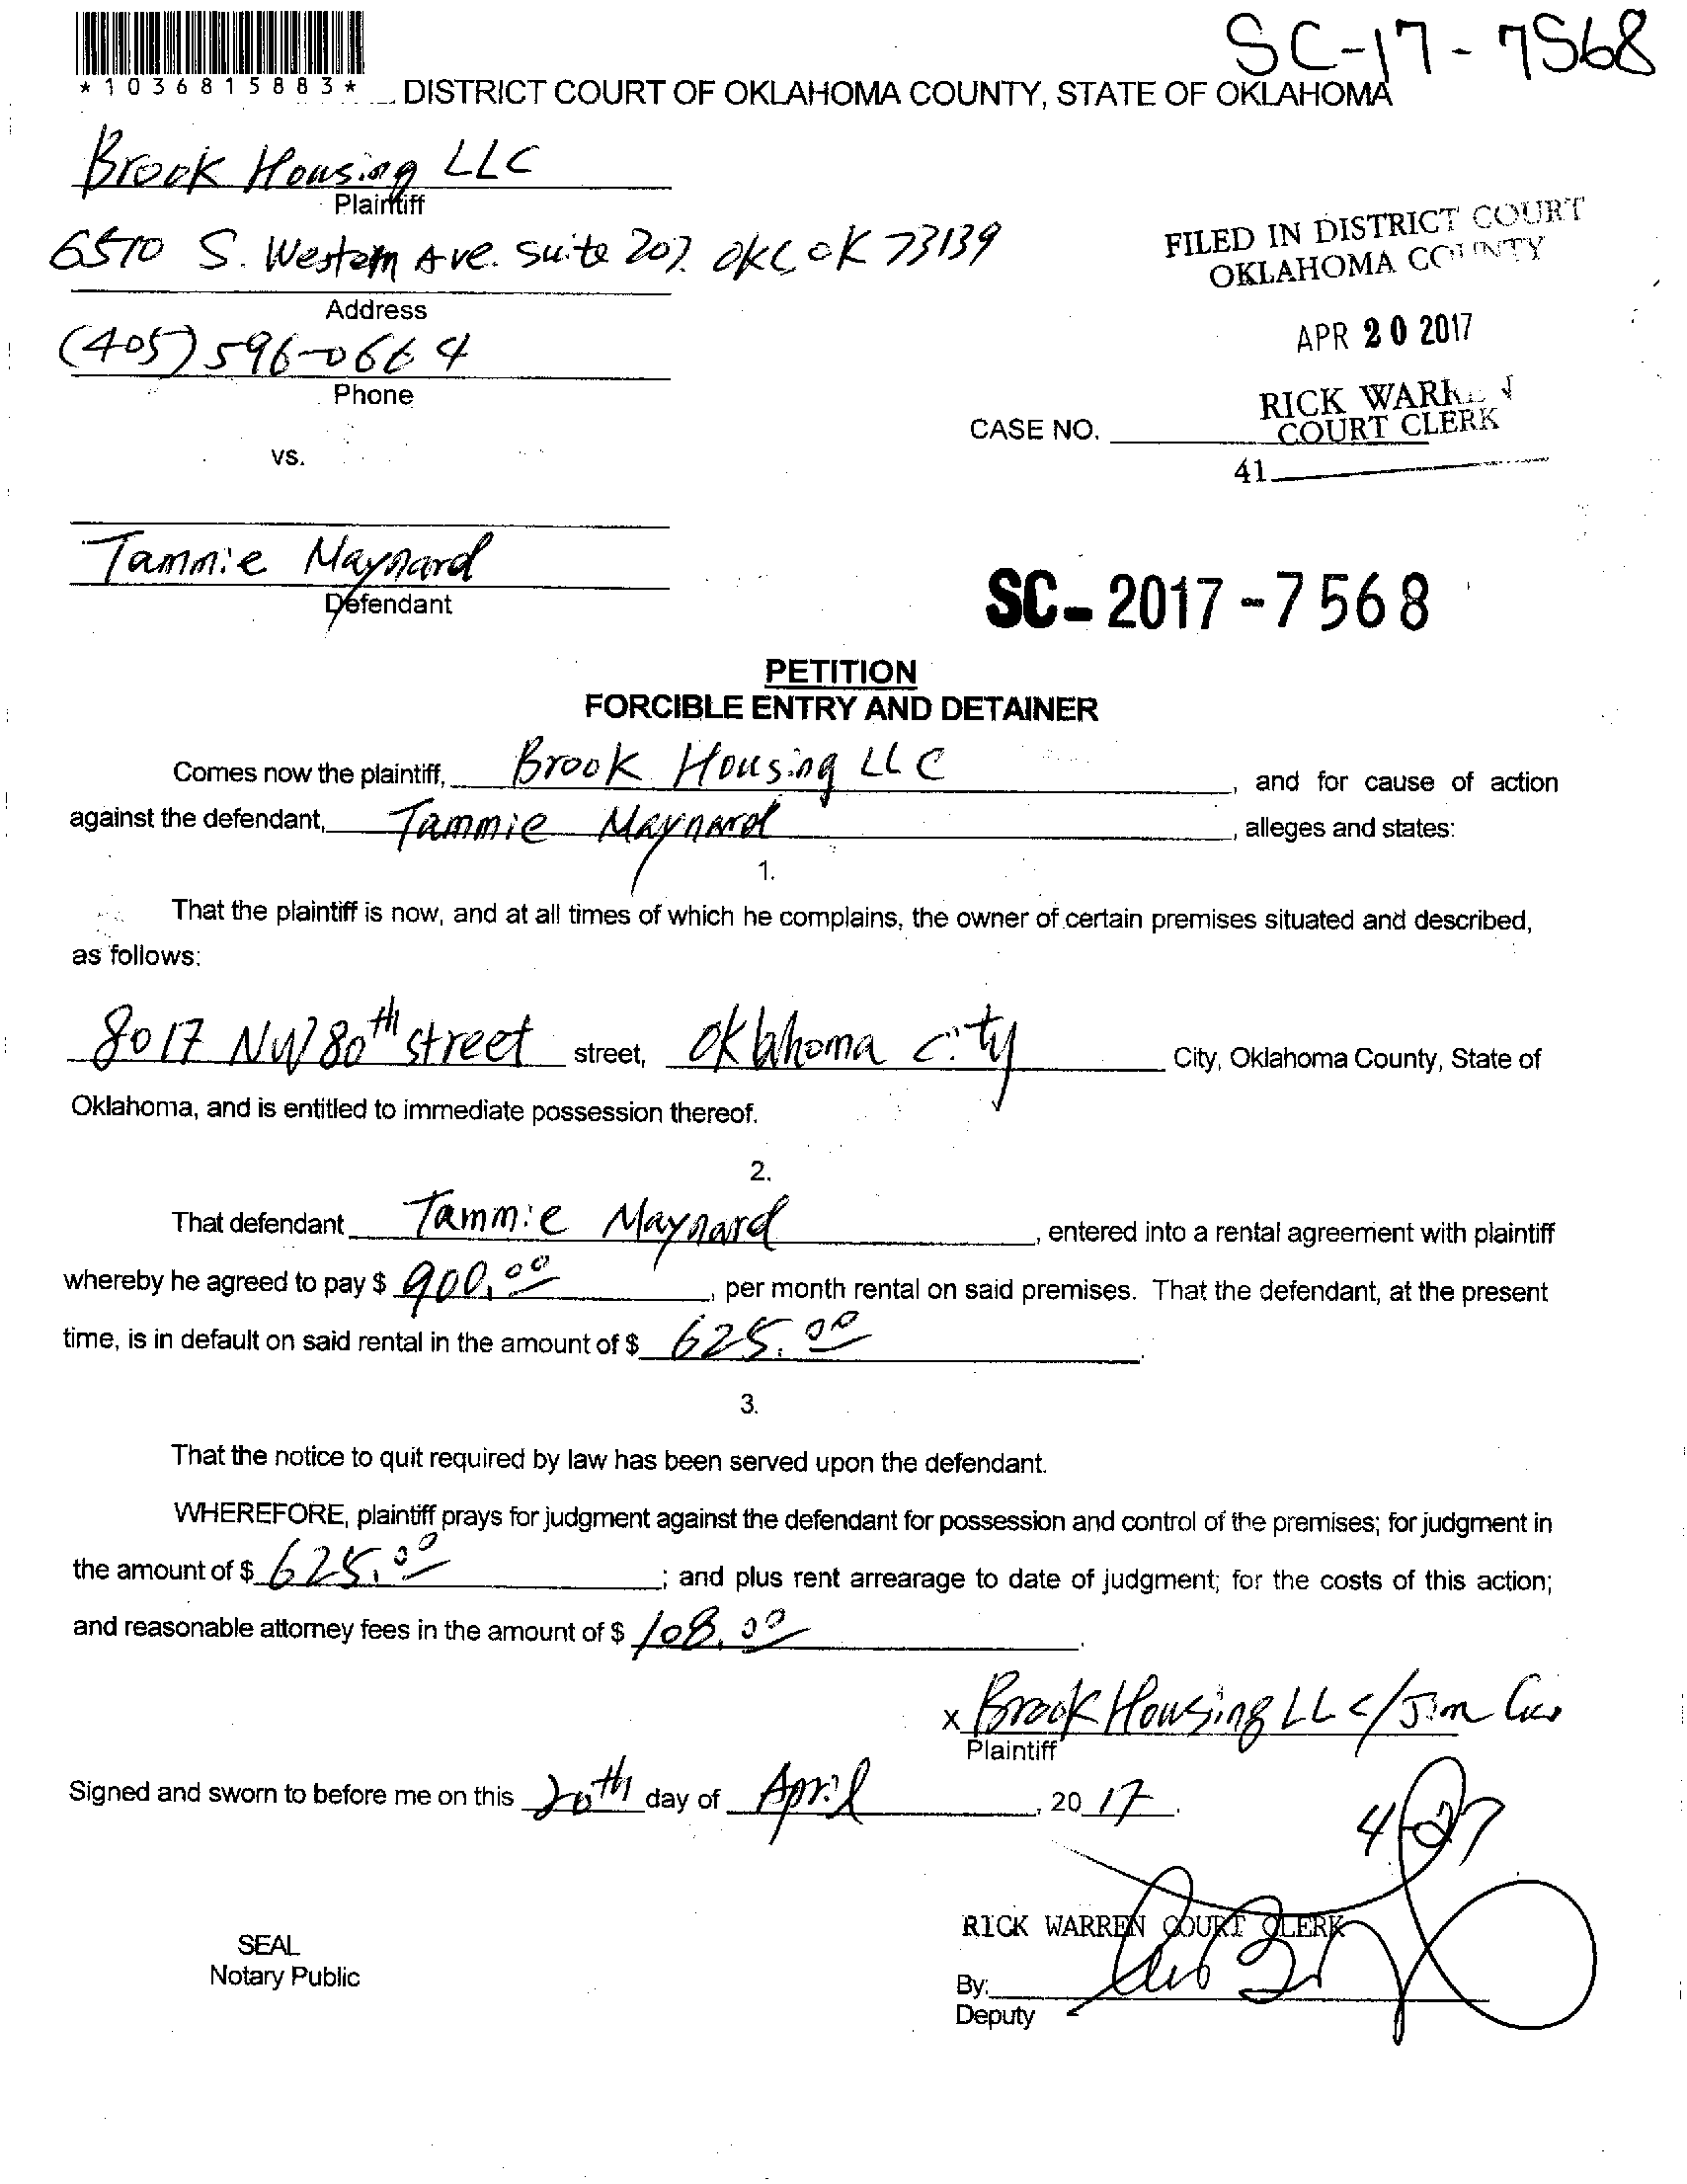 SC-17-7568
*1036815883*
DISTRICT COURT OF OKLAHOMA COUNTY, STATE OF OKLAHOMA
Brook Housing LLC
Plaintiff
6510 S. Western Ave. Suite 207. OKC OK 73139
Address
(405) 596-0664
Phone
FILED IN DISTRICT COURT
OKLAHOMA COUNTY
APR 20 2017
RICK WARREN
COURT CLERK
CASE NO.
41
vs.
Tammie Maynard
Defendant
SC-2017-7568
PETITION
FORCIBLE ENTRY AND DETAINER
Comes now the plaintiff, Brook Housing LLC, and for cause of action
against the defendant, Tammie Maynard, alleges and states:
1.
That the plaintiff is now, and at all times of which he complains, the owner of certain premises situated and described,
as follows:
8017 NW 80th street street, Oklahoma city City, Oklahoma County, State of
Oklahoma, and is entitled to immediate possession thereof.
2.
That defendant Tammie Maynard, entered into a rental agreement with plaintiff
whereby he agreed to pay $ 900.00, per month rental on said premises. That the defendant, at the present
time, is in default on said rental in the amount of $ 625.00.
3.
That the notice to quit required by law has been served upon the defendant.
WHEREFORE, plaintiff prays for judgment against the defendant for possession and control of the premises; for judgment in
the amount of $ 625.00; and plus rent arrearage to date of judgment; for the costs of this action;
and reasonable attorney fees in the amount of $ 108.00.
x Brook Housing LLC/Jim
Plaintiff
Signed and sworn to before me on this 20th day of April, 2017.
4-27
RICK WARREN COURT CLERK
SEAL
Notary Public
By:
Deputy